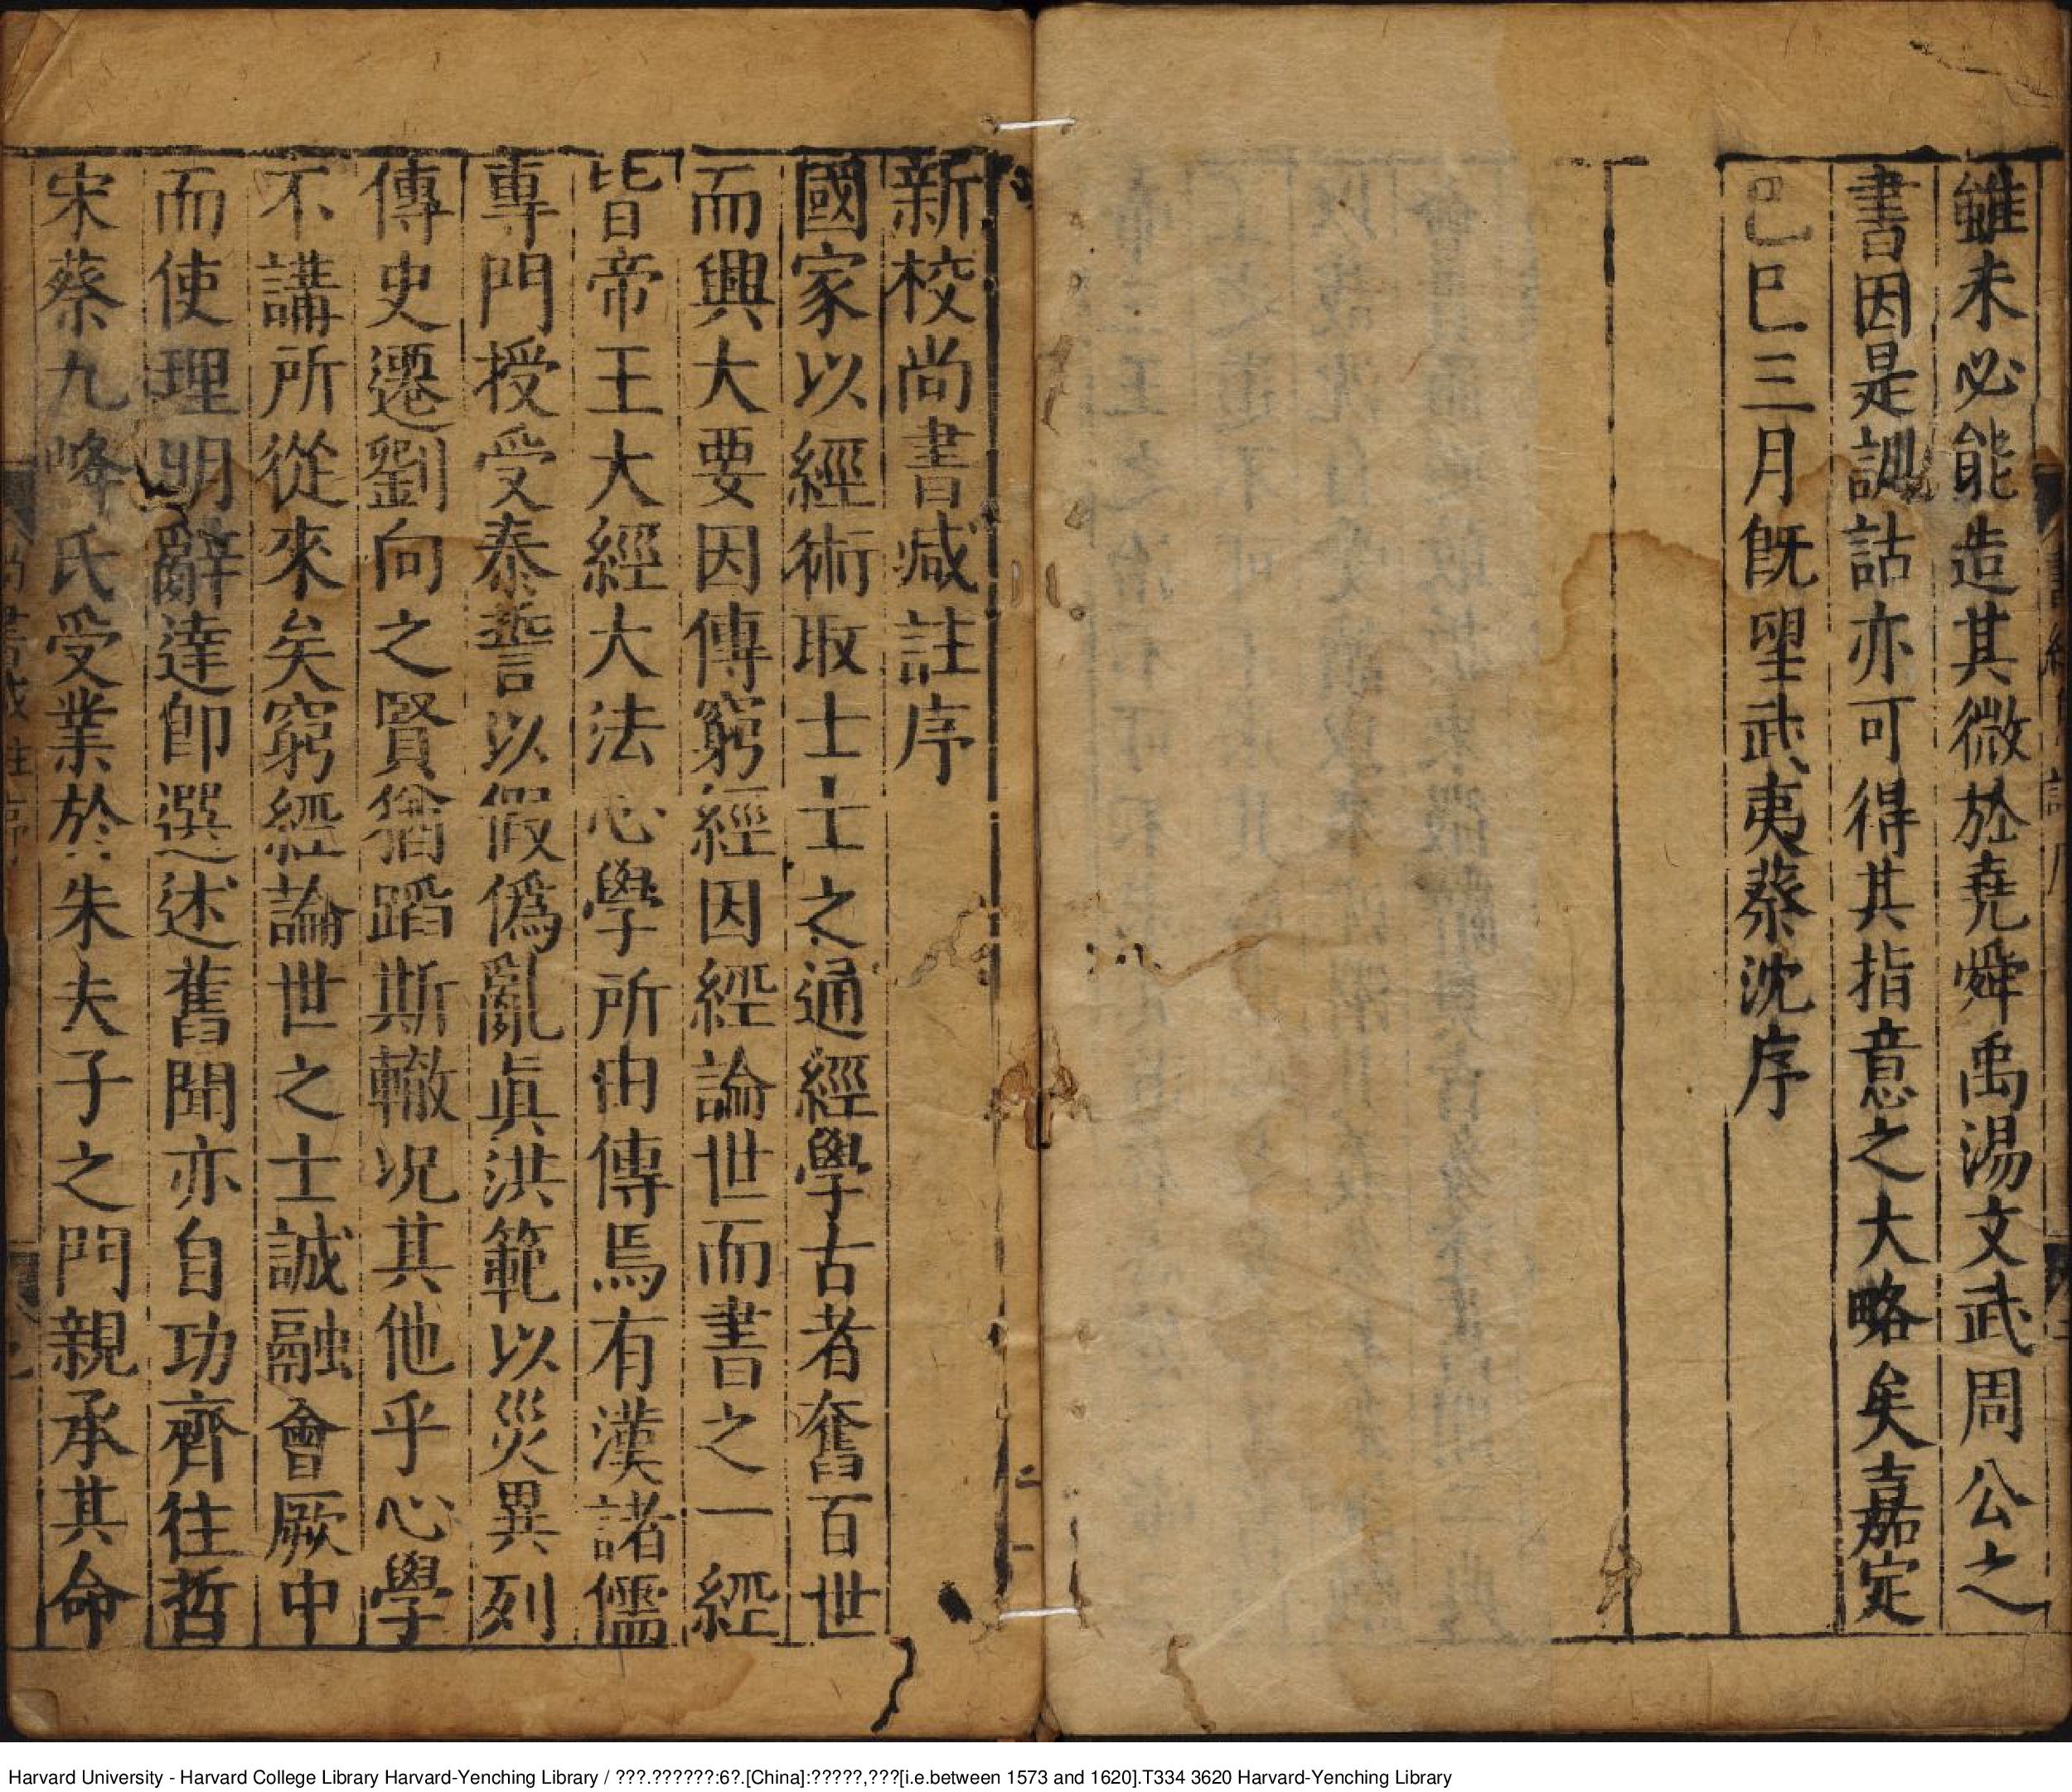 雖未必能造其微於堯舜禹湯文武周公之
書因是訓詁亦可得其指意之大略矣嘉定
己巳三月旣望武夷蔡沈序
新校尚書臧註序
國家以經術取士士之通經學古者奮百世
而興大要因傳窮經因經論世而書之一經
皆帝王大經大法心學所由傳焉有漢諸儒
專門授受泰誓以假僞亂眞洪範以災異列
傳史遷劉向之賢猶蹈斯轍况其他乎心學
不講所從來矣窮經論世之士誠融會厥中
而使理明辭達卽選述舊聞亦自功齊往哲
宋蔡九峰氏受業於朱夫子之門親承其命
Harvard University - Harvard College Library Harvard-Yenching Library / ???.??????:6?.[China]:?????,???[i.e.between 1573 and 1620].T334 3620 Harvard-Yenching Library